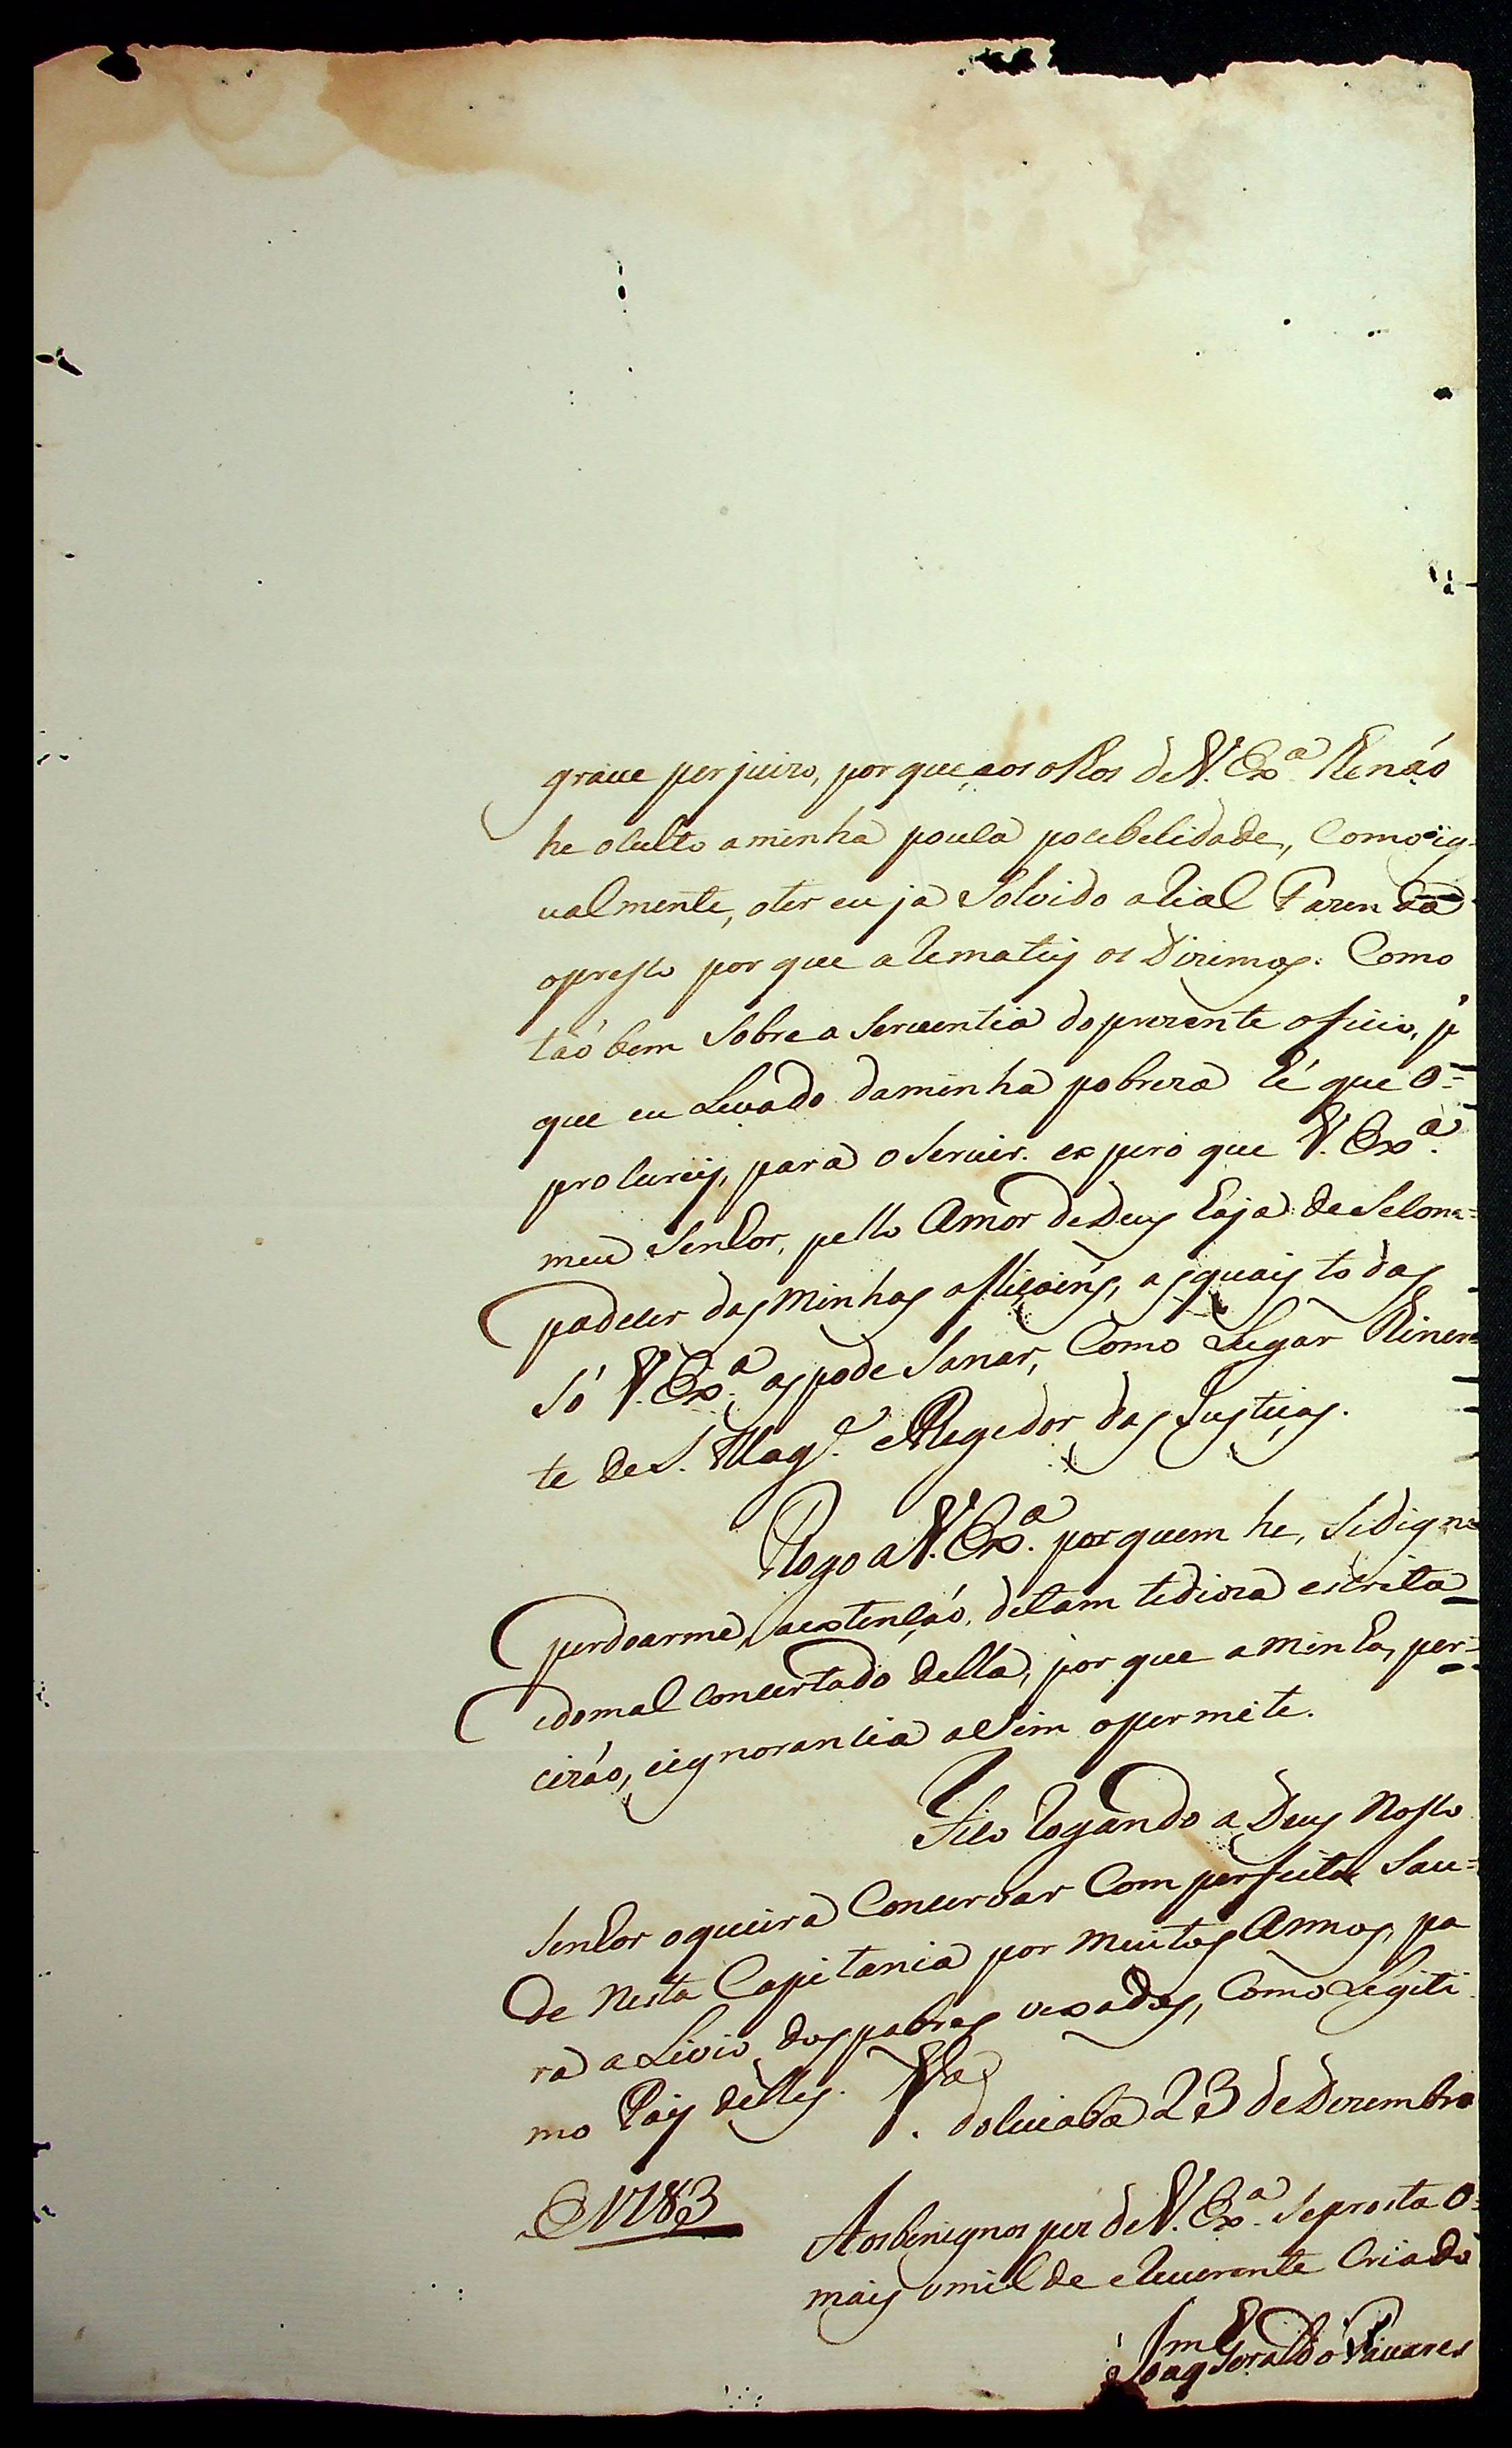 graue perjuizo, por que aos olhos de V. Exª lhe não
he oculto a minha pouca pocebelidade, como ig-
ualmente, o ter eu ja Solvido a Rial Fazenda
o presso por que aRematey os Dizimos. Como
tão bem sobre a serventia do prezente oficio, p
que eu Levado da minha pobreza hé que o=
procurey, para o servir. expero que V. Exª.
meu Senhor, pello Amor de Deuz haja de Se Com=
padecer das minhas afliçoins, as quais todas
Só V. Exª. as pode Sanar, Como Lugar thinen
te de S. Magᵉ. e Regedor das Justiças.
Rogo a V. Exª. por quem he, Se digne
perdoarme, a extenção, de tam tedioza escrita
e do mal concertado della, por que a minha, per=
cizão, e ignorancia assim o permite.
Fico Rogando a Deuz Nosso
Senhor o queira Concervar Com perfeita Sau=
de nesta Capitania por muitos Annos, pa
ra aLivio dos pobres vexados, Como Legiti
mo Pay delles. Vᵃ. do Cuiabá 23 de Dezembro
de 1783
Aos benignos pez de V. Exª. Se prosta o=
mais umilde e Reverente Criado
Joaqᵐ Geraldo Tavares